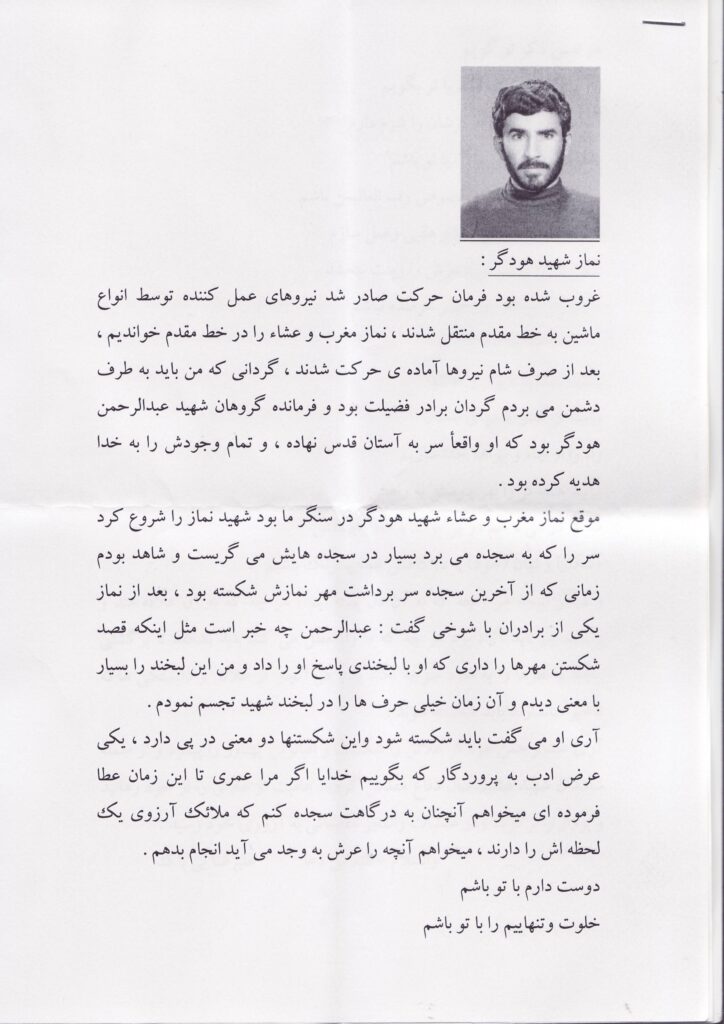 نماز شهید هودگر :
غروب شده بود فرمان حرکت صادر شد نیروهای عمل کننده توسط انواع
ماشین به خط مقدم منتقل شدند ، نماز مغرب و عشاء را در خط مقدم خواندیم ،
بعد از صرف شام نیروها آماده ی حرکت شدند ، گردانی که من باید به طرف
دشمن می بردم گردان برادر فضیلت بود و فرمانده گروهان شهید عبدالرحمن
هودگر بود که او واقعأ سر به آستان قدس نهاده ، و تمام وجودش را به خدا
هدیه کرده بود .
موقع نماز مغرب و عشاء شهید هودگر در سنگر ما بود شهید نماز را شروع کرد
سر را که به سجده می برد بسیار در سجده هایش می گریست و شاهد بودم
زمانی که از آخرین سجده سر برداشت مهر نمازش شکسته بود ، بعد از نماز
یکی از برادران با شوخی گفت : عبدالرحمن چه خبر است مثل اینکه قصد
شکستن مهرها را داری که او با لبخندی پاسخ او را داد و من این لبخند را بسیار
با معنی دیدم و آن زمان خیلی حرف ها را در لبخند شهید تجسم نمودم .
آری او می گفت باید شکسته شود واین شکستنها دو معنی در پی دارد ، یکی
عرض ادب به پروردگار که بگوییم خدایا اگر مرا عمری تا این زمان عطا
فرموده ای میخواهم آنچنان به درگاهت سجده کنم که ملائک آرزوی یک
لحظه اش را دارند ، میخواهم آنچه را عرش به وجد می آید انجام بدهم .
دوست دارم با تو باشم
خلوت وتنهاییم را با تو باشم